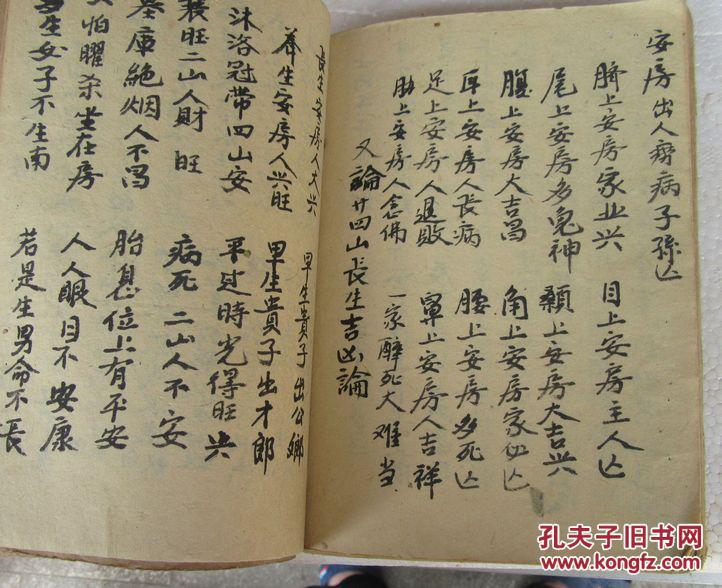 安房出人病子孫亾
臍上安房家业兴 目上安房主人亾
尾上安房多鬼神 顙上安房大吉兴
腹上安房大吉昌 角上安房家必亾
耳上安房人長病 腰上安房多死亾
足上安房人退敗 上安房人吉祥
肋上安房人念佛 一家醉死大难当
又論廿四山長生吉凶論
生安房人大兴 早生貴子出公卿
养生安房人兴旺 早生貴子出才郎
沐浴冠帶四山安 平过時光得旺兴
衰旺二山人財旺 病死二山人不安
墓庫絕烟人不昌 胎息位上有平安
怕曜杀坐在房 人人眼目不安康
生女子不生南 若是生男命不長
孔夫子旧书网
www.kongfz.com